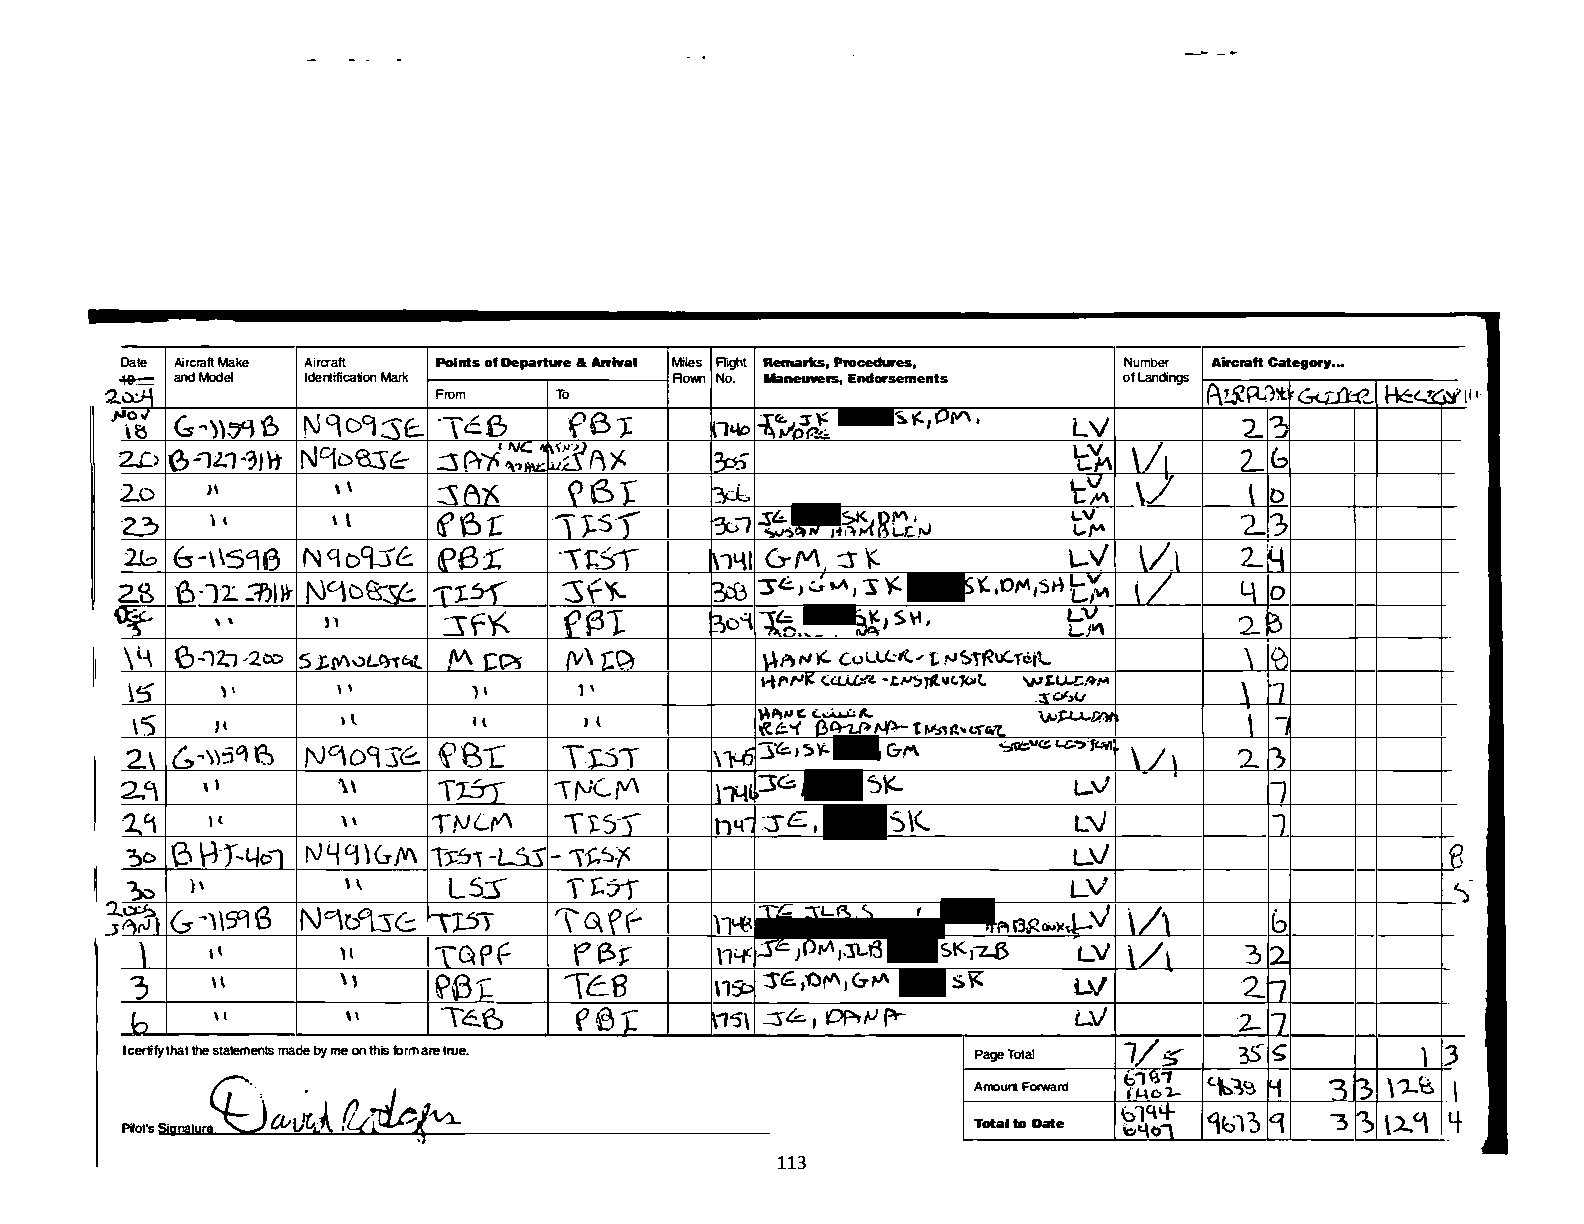 Date Aircraft Make and Model Aircraft Identification Mark Points of Departure & Arrival Miles Flown Flight No. Remarks, Procedures, Maneuvers, Endorsements Number of Landings Aircraft Category...
19
2004 From To AIRPLANE GLIDER
NOV 18 G-1159B N909JE TEB PBI 1740 JE, JK SK, DM, ANDRE LV 2 3
20 B-727-31H N908JE JAX JAX 305 LV LM 1/1 2 6
20 " " JAX PBI 306 LV LM 1/ 1 0
23 " " PBI TIST 307 JE SK, DM, SUSAN HAMBLEN LV LM 2 3
26 G-1159B N909JE PBI TIST 1741 GM, JK LV 1/1 2 4
28 B-72 31H N908JE TIST JFK 308 JE, GM, JK SK, DM, SH LV LM 1/ 4 0
DEC 3 " " JFK PBI 309 JE SK, SH, LV LM 2 8
14 B-727-200 SIMULATOR MIA MIA HANK COLLER-INSTRUCTOR 1 8
15 " " " " HANK COLLER-INSTRUCTOR WILLIAM 1 7
15 " " " " HANK COLLER INSTRUCTOR WILLIAM 1 7
21 G-1159B N909JE PBI TIST 1745 JE, SK GM 1/1 2 3
29 " " TIST TNCM 1746 JE SK LV 7
29 " " TNCM TIST 1747 JE, SK LV 7
30 BHT-407 N491GM TIST-LSJ-TISX LV 8
30 " " LSJ TIST LV 5
2005 JAN 1 G-1159B N909JE TIST TQPF 1748 JE JLB, LV 1/1 6
1 " " TQPF PBI 1749 JE, DM, JLB SK, ZB LV 1/1 3 2
3 " " PBI TEB 1750 JE, DM, GM SK LV 2 7
6 " " TEB PBI 1751 JE, DANA LV 2 7
I certify that the statements made by me on this form are true. Page Total 7/5 35 5 1 3
Amount Forward 6787 9638 4 3 3 128 1
Pilot's Signature David Rodgers Total to Date 6794 6407 9673 9 3 3 129 4
113